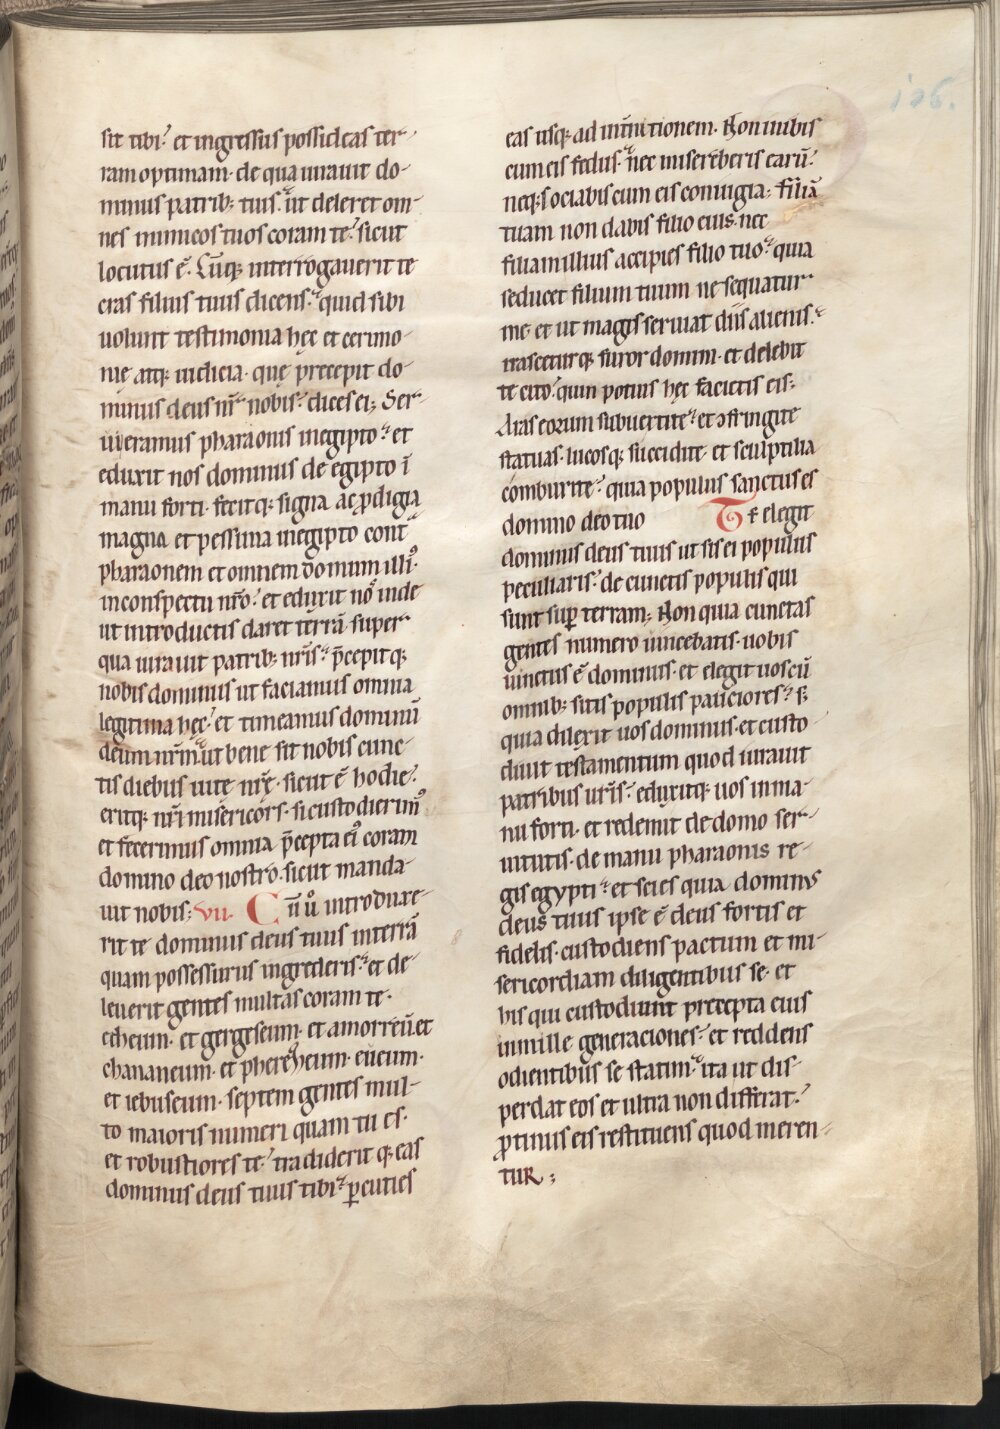 106.
sit tibi. et ingressus possideas ter-
ram optimam. de qua iurauit do-
minus patrib; tuis. ut deleret om-
nes inimicos tuos coram te. sicut
locutus ē. Cūq; interrogauerit te
cras filius tuus dicens. quid sibi
uolunt testimonia hęc et cerimo-
nię atq; iudicia. que precepit do-
minus deus nr̄ nobis. dices ei; Ser-
uieramus pharaonis inegipto. et
eduxit nos dominus de egipto ī
manu forti. fecitq; signa ac p̱digia
magna et pessima inegipto cont
pharaonem et omnem domum illi᾿.
inconspectu nr̄o. et eduxit no᾿ inde
ut introductis daret terrā super
qua iurauit patrib; nr̄is. p̄cepitq;
nobis dominus ut faciamus omnia
legitima hęc. et timeamus dominū
deum nr̄m. ut bene sit nobis cunc-
tis diebus uite nr̄ę. sicut ē hodie.
eritq; nr̄i misericors. si custodierim᾿
et fecerimus omnia p̄cepta ei᾿ coram
domino deo nostro. sicut manda-
uit nobis; VII. Cū ū introduxe-
rit te dominus deus tuus interrā
quam possessurus ingrederis. et de-
leuerit gentes multas coram te.
etheum. et gergeseum. et amorreū. et
chananeum. et pherezeum. eueum.
et iebuseum. septem gentes mul-
to maioris numeri quam tu es.
et robustiores te. tradideritq; eas
dominus deus tuus tibi. ꝑcuties
eas usq; ad int̄nitionem. Non inibis
cum eis fedus. nec misereberis earū.
neq; sociabis cum eis coniugia; filiā
tuam non dabis filio eius. nec
filiam illius accipies filio tuo. quia
seducet filium tuum ne sequatur
me. et ut magis seruiat diis alienis.
irasceturq; furor domini. et delebit
te cito. quin potius hęc facietis eis;
Aras eorum subuertite. et ɔfringite
statuas. lucosq; succidite. et sculptilia
comburite. quia populus sanctus es
domino deo tuo Te elegit
dominus deus tuus ut sis ei populus
peculiaris. de cunctis populis qui
sunt suꝑ terram; Non quia cunctas
gentes numero uincebatis. uobis
uinctus ē dominus. et elegit uos cū
omnib; sitis populis pauciores. s;
quia dilexit uos dominus. et custo-
diuit testamentum quod iurauit
patribus ur̄is. eduxitq; uos in ma-
nu forti. et redemit de domo ser-
uitutis. de manu pharaonis re-
gis egypti. et scies quia dominus
deus tuus ipse ē deus fortis et
fidelis. custodiens pactum et mi-
sericordiam diligentibus se. et
his qui custodiunt precepta eius
inmille generaciones. et reddens
odientibus se statim. ita ut dis-
perdat eos et ultra non differat.
ꝓtinus eis restituens quod meren-
tur;